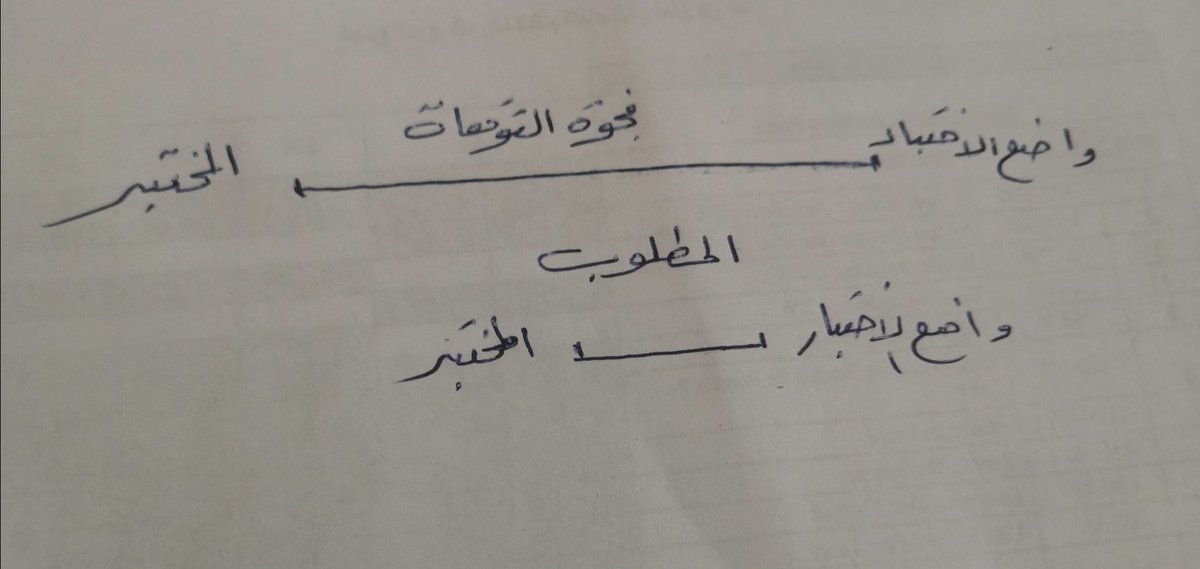 فجوة التوقعات
واضع الاختبار المختبر
المطلوب
واضع الاختبار المختبر